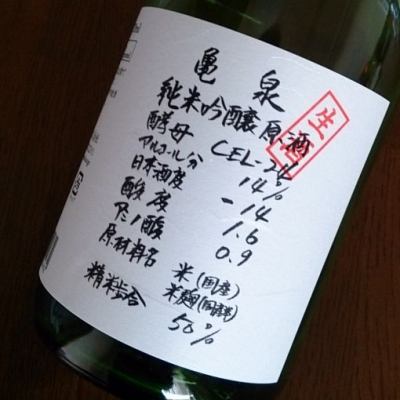 亀泉
純米吟醸原酒
生酒
酵母 CEL-24
アルコール分 14%
日本酒度 -14
酸度 1.6
アミノ酸 0.9
原材料名 米(国産)
米麹(国産米)
精米歩合 50%